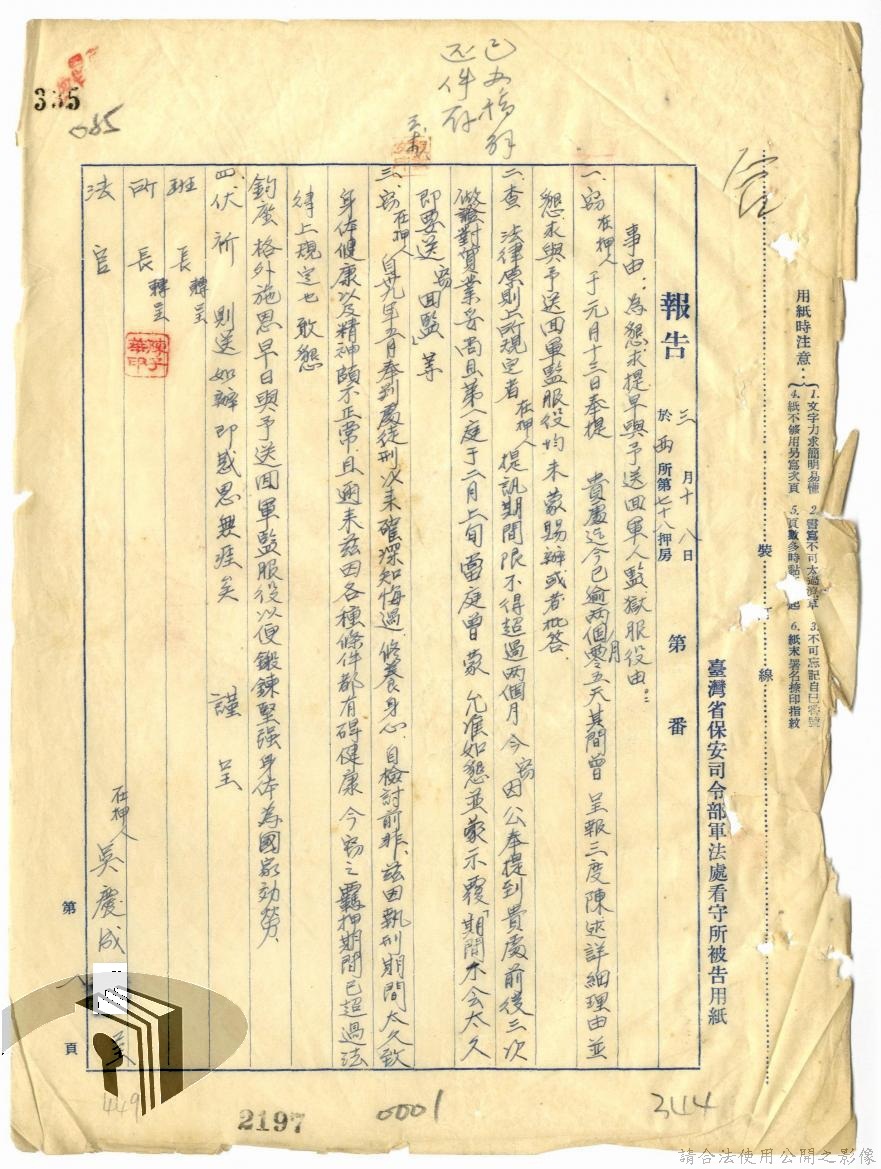 335
085
已如擬辦
臺灣省保安司令部軍法處看守所被告用紙
用紙時注意：
1. 文字力求簡明易懂
2. 書寫不可太過潦草
3. 不可忘記自己
4. 紙不够用另寫次頁
5. 頁數多時黏 起
6. 紙末署名捺印指紋
裝 線
報告 於 三月十八日 西所第七十八押房 第 番
事由：為懇求提早與予送囬軍人監獄服役由：
一、窃在押人于元月十三日奉提 貴處迄今已逾兩個月零五天其間曾 呈報三度陳述詳細理由並
懇求與予送囬軍監服役均未蒙賜辦或者批答、
二、查 法律原則上所規定者 在押人提訊期間限不得超過兩個月 今窃因公奉提到貴處前後三次
對質業妥當且第一庭于二月上旬當庭曾蒙 允准如懇並蒙示覆「期間不會太久
即要送窃囬監」等
三、窃在押人自廿九年五月奉判處徒刑以來確深知悔過、修養身心、自檢討前非、茲因執刑期間太久致
身体健康以及精神頗不正常、且邇來茲因各種條件都有碍健康 今窃之羈押期間已超過法
律上規定也 敢懇
鈞座格外施恩早日與予送囬軍監服役以便鍛鍊堅强身体為國家効勞、
四、伏祈 則送如辦即感恩無涯矣 謹呈
班 長 轉呈
所 長 轉呈
法 官
在押人 吳慶成
第 頁
449
2197
0001
344
請合法使用公開之影像